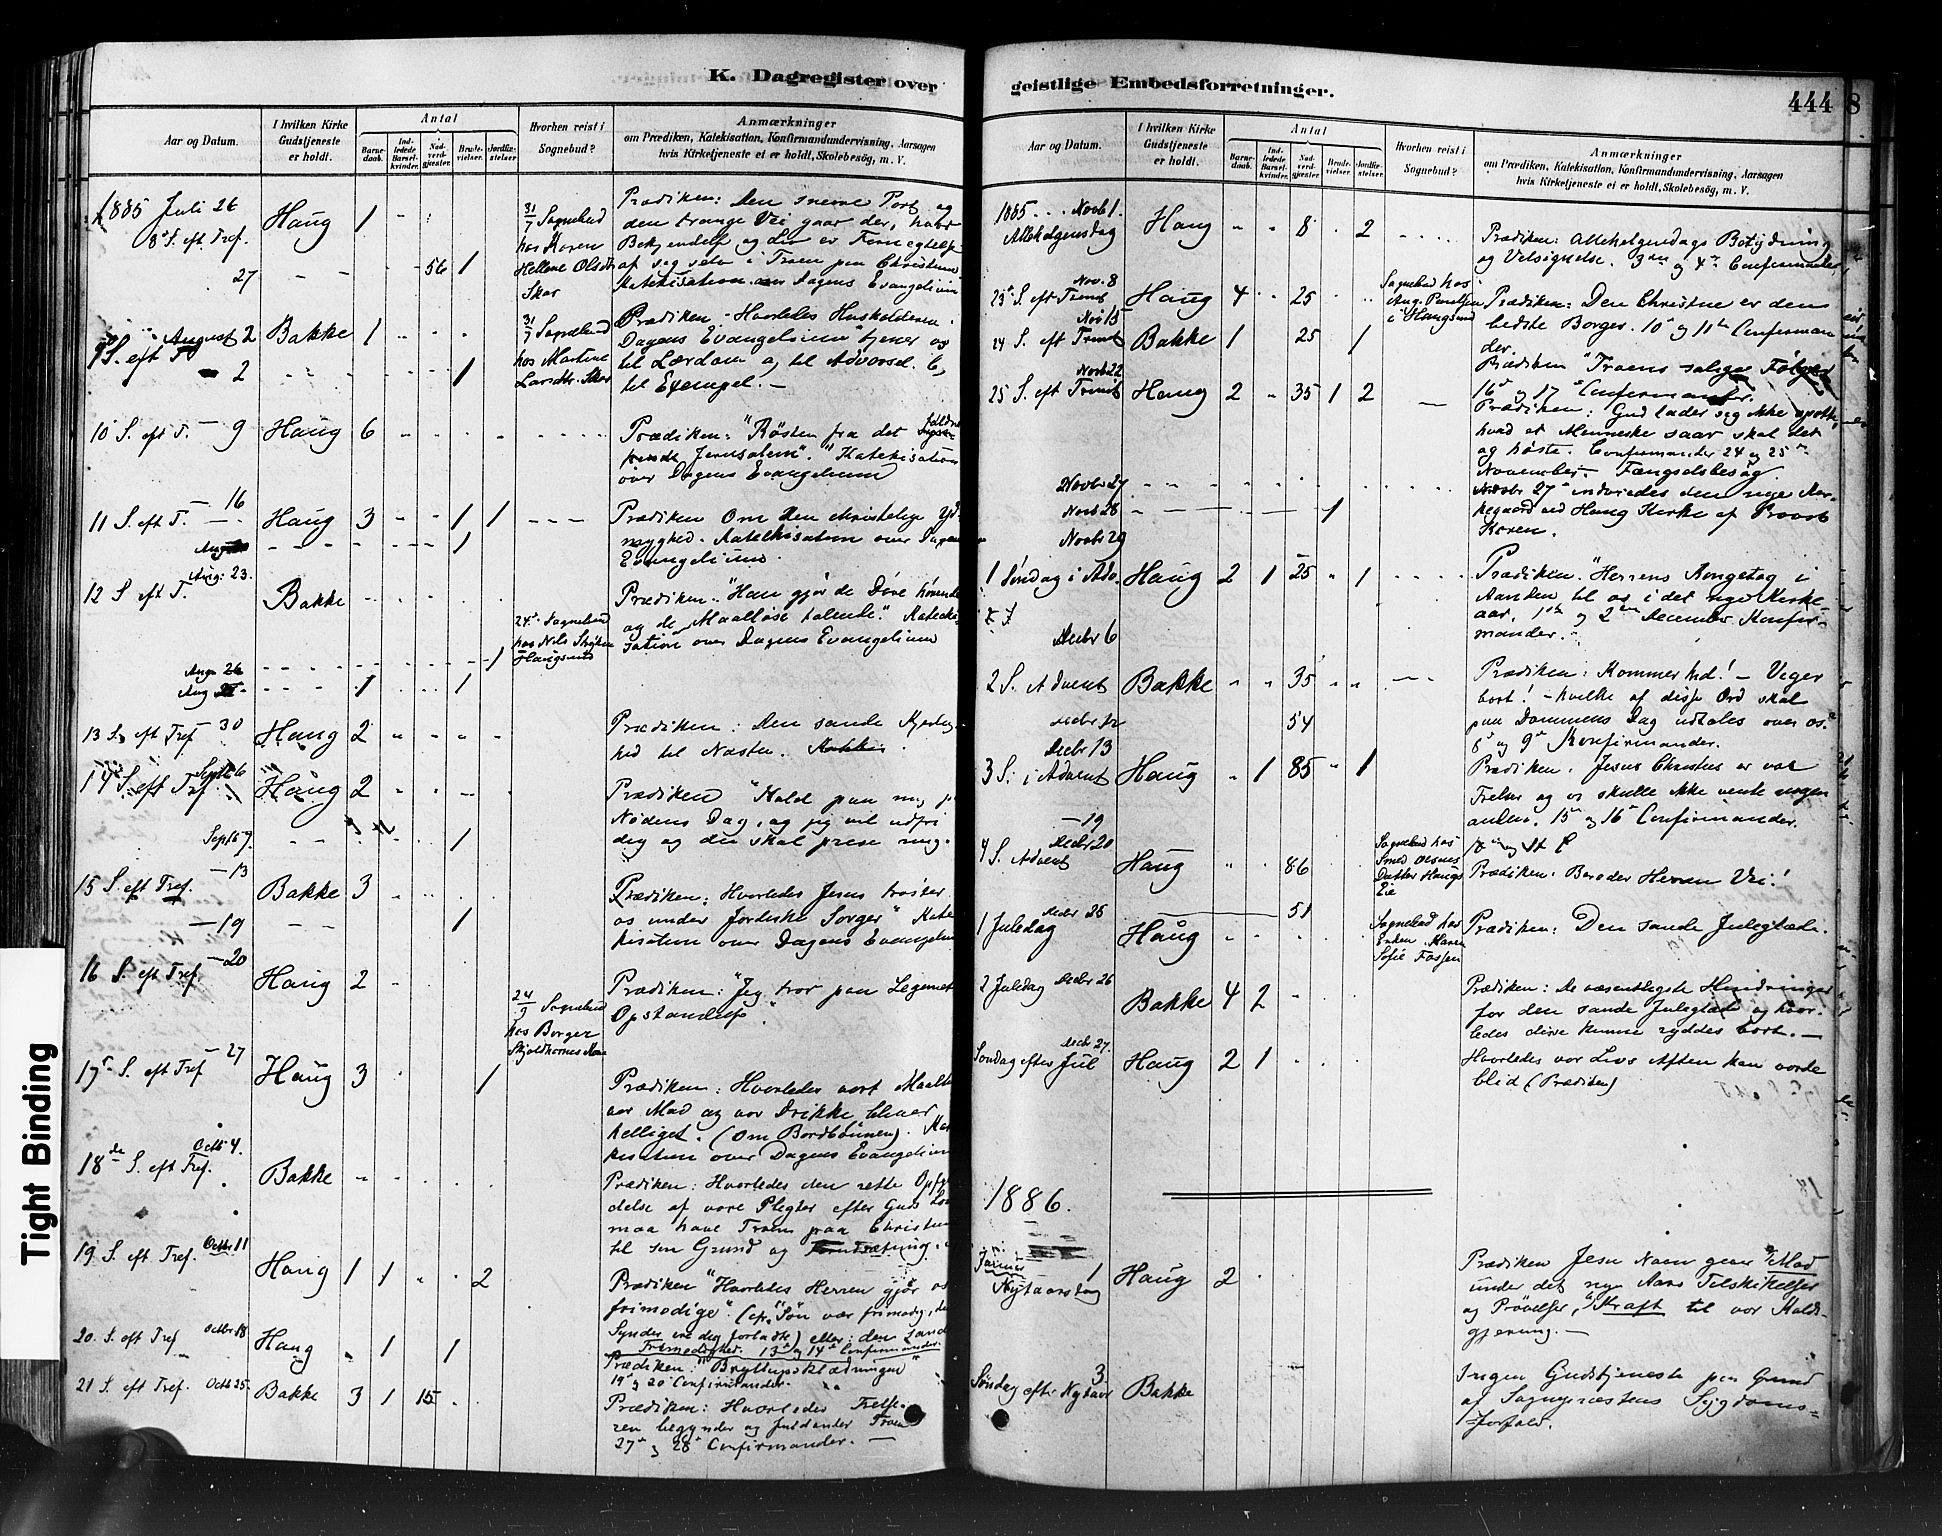 K. Dagregister over
Aar og Datum.
I hvilken Kirke Gudstjeneste er holdt.
Antal
Barnedaab.
Indledede Barselkvinder.
Nadverdgjester.
Brudevielser.
Jordfæstelser.
Hvorhen reist i Sognebud?
Anmærkninger
om Prædiken, Katekisation, Konfirmandundervisning, Aarsagen
hvis Kirketjeneste ei er holdt, Skolebesøg, m. V.
1885 Juli 26
8de S. eft Tref. Haug 1
31/7 Sognebud
hos Karen
Hellene Olsdtr
Skar
Prædiken: Den snevre Port og
den trange Vei gaar der, hvor
Bekjendelse og Liv er Fornegtelse
af sig selv i Troen paa Christum
Katekisation over Dagens Evangelium
27 56 1
August 2
9 S. eft T. Bakke 1
31/7 Sognebud
hos Martine
Larsdtr. Skar
Prædiken - Hvorledes Husholderen i
Dagens Evangelium tjener os
til Lærdom og til Advarsel &
til Exempel. —
2 1
10 S. eft T. — 9 Haug 6
Prædiken: "Røsten fra det
Jerusalem". Katekisation
over Dagens Evangelium
— 16
11 S. eft T. Haug 3 1 1
Prædiken Om den christelige Yd-
myghed. Katekisation over Dagens
Evangelium.
1
Aug. 23.
12 S eft T. Bakke
24de Sognebud
hos Nils
Haugsund
Prædiken: "Han gjør de Døve hørende
og de Maalløse talende." Kateki-
sation over Dagens Evangelium
Aug. 26 1
Aug 1 1
13 S. eft Tref — 30 Haug 2
Prædiken: Den sande Kjerlig-
hed til Næsten.
Septb 6
14 S. eft Tref. Haug 2
Prædiken "Kald paa mig paa
Nødens Dag, og jeg vil udfri
dig og du skal prise mig."
Septb 7. 1
— 13
15 S. eft Tref. Bakke 3
Prædiken: Hvorledes Jesus trøster
os under Jordiske Sorger" Kate
kisation over Dagens Evangelium
— 19 1
— 20
16 S. eft Tref. Haug 2
24/9 Sognebud
hos Borger
Skjoldhornes Kone
Prædiken: "Jeg tror paa Legemets
Opstandelse".
— 27
17de S. eft Tref Haug 3 1
Prædiken: Hvorledes vort Maaltid
vor Mad og vor Drikke bliver
helliget. (Om Bordbønnen). Kate
kisation over Dagens Evangelium
Octb 4.
18de S. eft Tref. Bakke
Prædiken: Hvorledes den rette Opfyl
delse af vore Pligter efter Guds Lov
maa have Troen paa Christum
til sin Grund og Forudsætning.
Octbr. 11
19 S. eft Tref. Haug 1 1 2
Prædiken "Hvorledes Herren gjør os
frimodige". (cfr. "Søn vær frimodig, dine
Synder ere dig forladte) eller: den sande
Frimodighed. 13de og 14de Confirmander.
20. S. eft Tref Octbr 18 Haug 1 1
Prædiken: "Bryllupsklædningen"
19de og 20de Confirmander.
21 S. eft Tref. Octb 25. Bakke 3 1 15
Prædiken: Hvorledes Frelse-
ren begynder og fuldender Troen
27de og 28de Confirmander. —
geistlige Embedsforretninger.
444
8
Aar og Datum.
I hvilken Kirke Gudstjeneste er holdt.
Antal
Barnedaab.
Indledede Barselkvinder.
Nadverdgjester.
Brudevielser.
Jordfæstelser.
Hvorhen reist i Sognebud?
Anmærkninger
om Prædiken, Katekisation, Konfirmandundervisning, Aarsagen
hvis Kirketjeneste ei er holdt, Skolebesøg, m. V.
1885 . . . Novb 1.
Allehelgensdag Haug 8 2
Prædiken: Allehelgensdags Betydning
og Velsignelse. 3die og 4de Confirmander
Nov. 8
23de S. eft Trinit Haug 4 25
Sognebud hos
Aug. Paulsen
i Haugsund
Prædiken: Den Christne er den
bedste Borger. 10de og 11te Confirman
der.
Nov 15
24 S. eft Trinit Bakke 1 25 1
Prædiken "Troens salige Følger
16de og 17de Confirmander.
Novb 22
25 S. eft Trinit Haug 2 35 1 2
Prædiken: Gud lader sig ikke spotte
hvad et Menneske saar skal det
og høste. Confirmander 24 og 25de
November. Fængselsbesøg.
Novbr 27
Novbr 27de indviedes den nye Kir-
kegaard ved Haug Kirke af Provst
Koren.
Novb 28 1
Novbr 29
1 Søndag i Adv. Haug 2 1 25 1
Prædiken. "Herrens Kongetog i
Aanden til os i det nye Kirke-
aar. 1ste og 2den December Konfir-
mander.
Decbr 6
2 S. Advent Bakke 35
Prædiken: Kommer hid! — Viger
bort! — hvilke af disse Ord skal
paa Dommens Dag udtales over os.
8de og 9de Konfirmander.
Decbr 12 54
Decbr 13
3 S. i Advent Haug 1 85 1
Prædiken. Jesus Christus er vor
Frelser og vi skulle ikke vente nogen
anden. 15de og 16de Confirmander.
— 19
Decbr 20
4 S. Advent Haug 86
Sognebud hos
Smed Olsens
Datter Haugs
Eie
Prædiken. Bereder Herren Vei!
51
Decbr 25
1 Juledag Haug
Sognebud hos
Enken Karen
Sofie Fossen
Prædiken: Den sande Juleglæde.
2 Juledag Decbr 26 Bakke 4 2
Prædiken: De væsentligste Hindringer
for den sande Juleglæde og hvor-
ledes disse kunne ryddes bort. —
Decbr 27.
Søndag efter Jul Haug 2 1
Hvorledes vor Livs Aften kan vorde
blid (Prædiken)
1886.
Januar 1
Nytaarsdag Haug 2
Prædiken Jesu Navn giver Mod
under det nye Aars Tilskikkelser
og Prøvelser, Kraft til vor Kalds-
gjerning. —
3
Søndag efter Nytaar Bakke
Ingen Gudstjeneste paa Grund
af Sognepræstens Sygdoms-
forfald.
Tight Binding